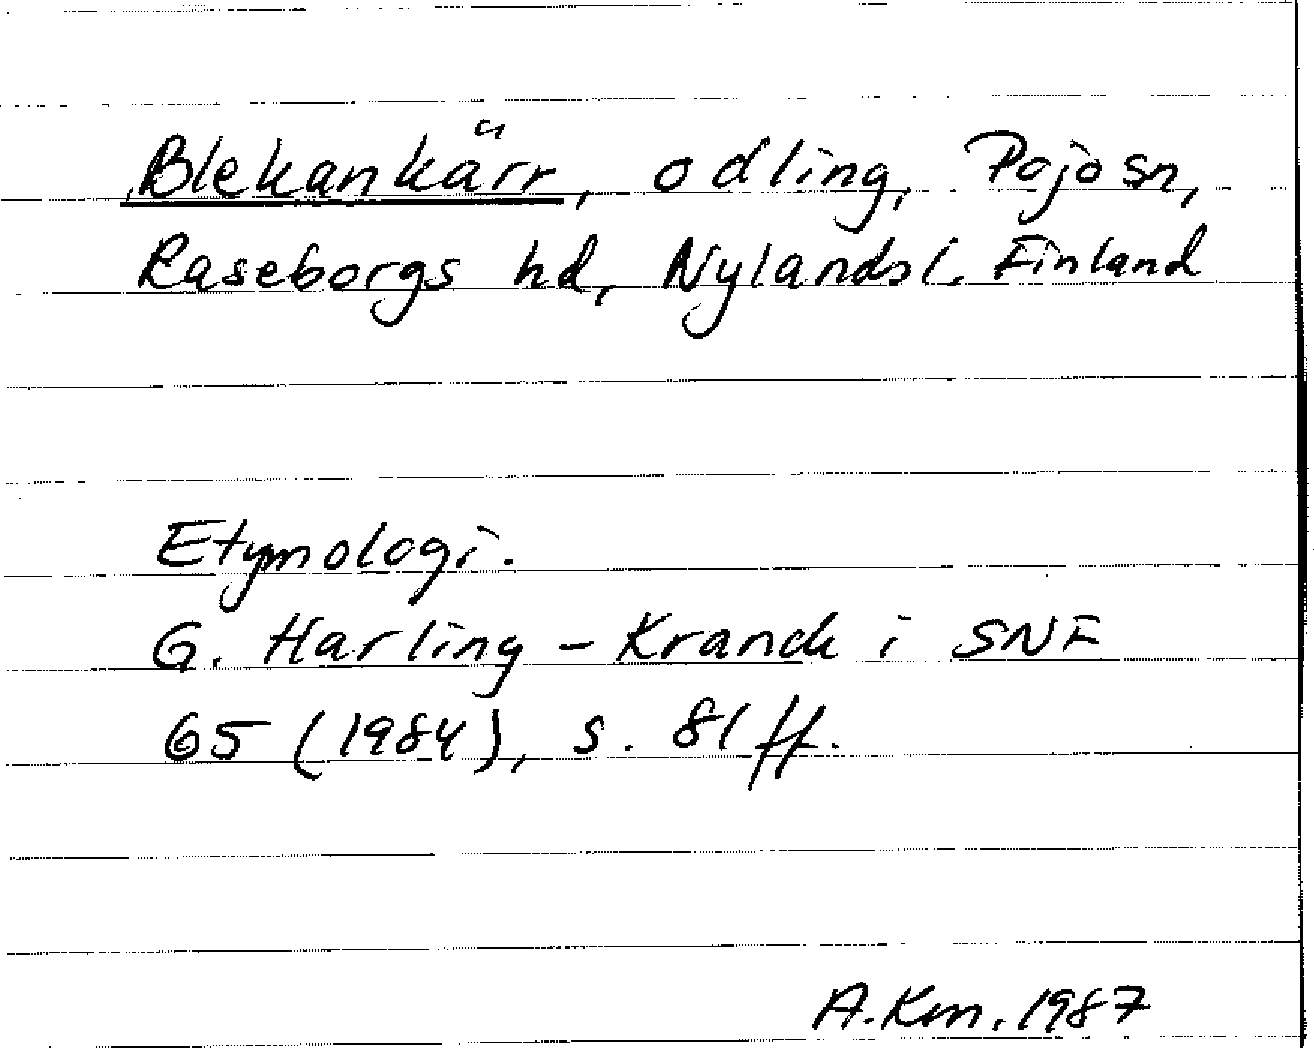 Blekankärr, odling, Pojo sn,
Raseborgs hd, Nylands l. Finland
Etymologi.
G. Harling-Kranck i SNF
65 (1984), s. 81 ff.
A.Km. 1987